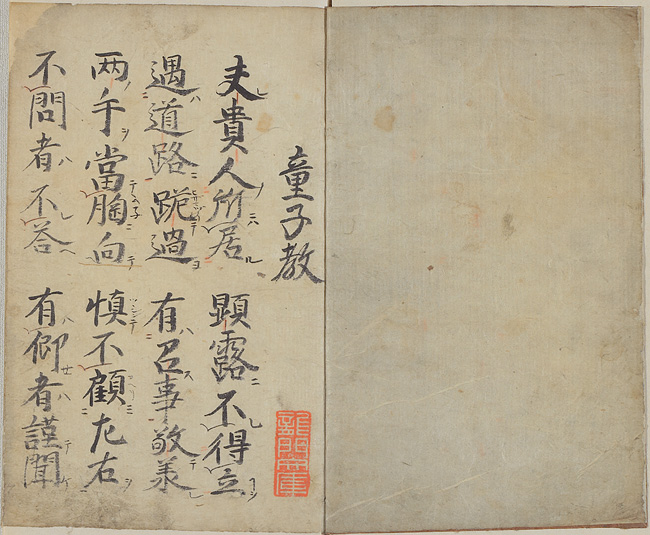 童子教
夫貴人所居 顕露不得立
遇道路跪過 有召事敬承
两手當胸向 慎不顧左右
不問者不答 有仰者謹聞
龍門文庫